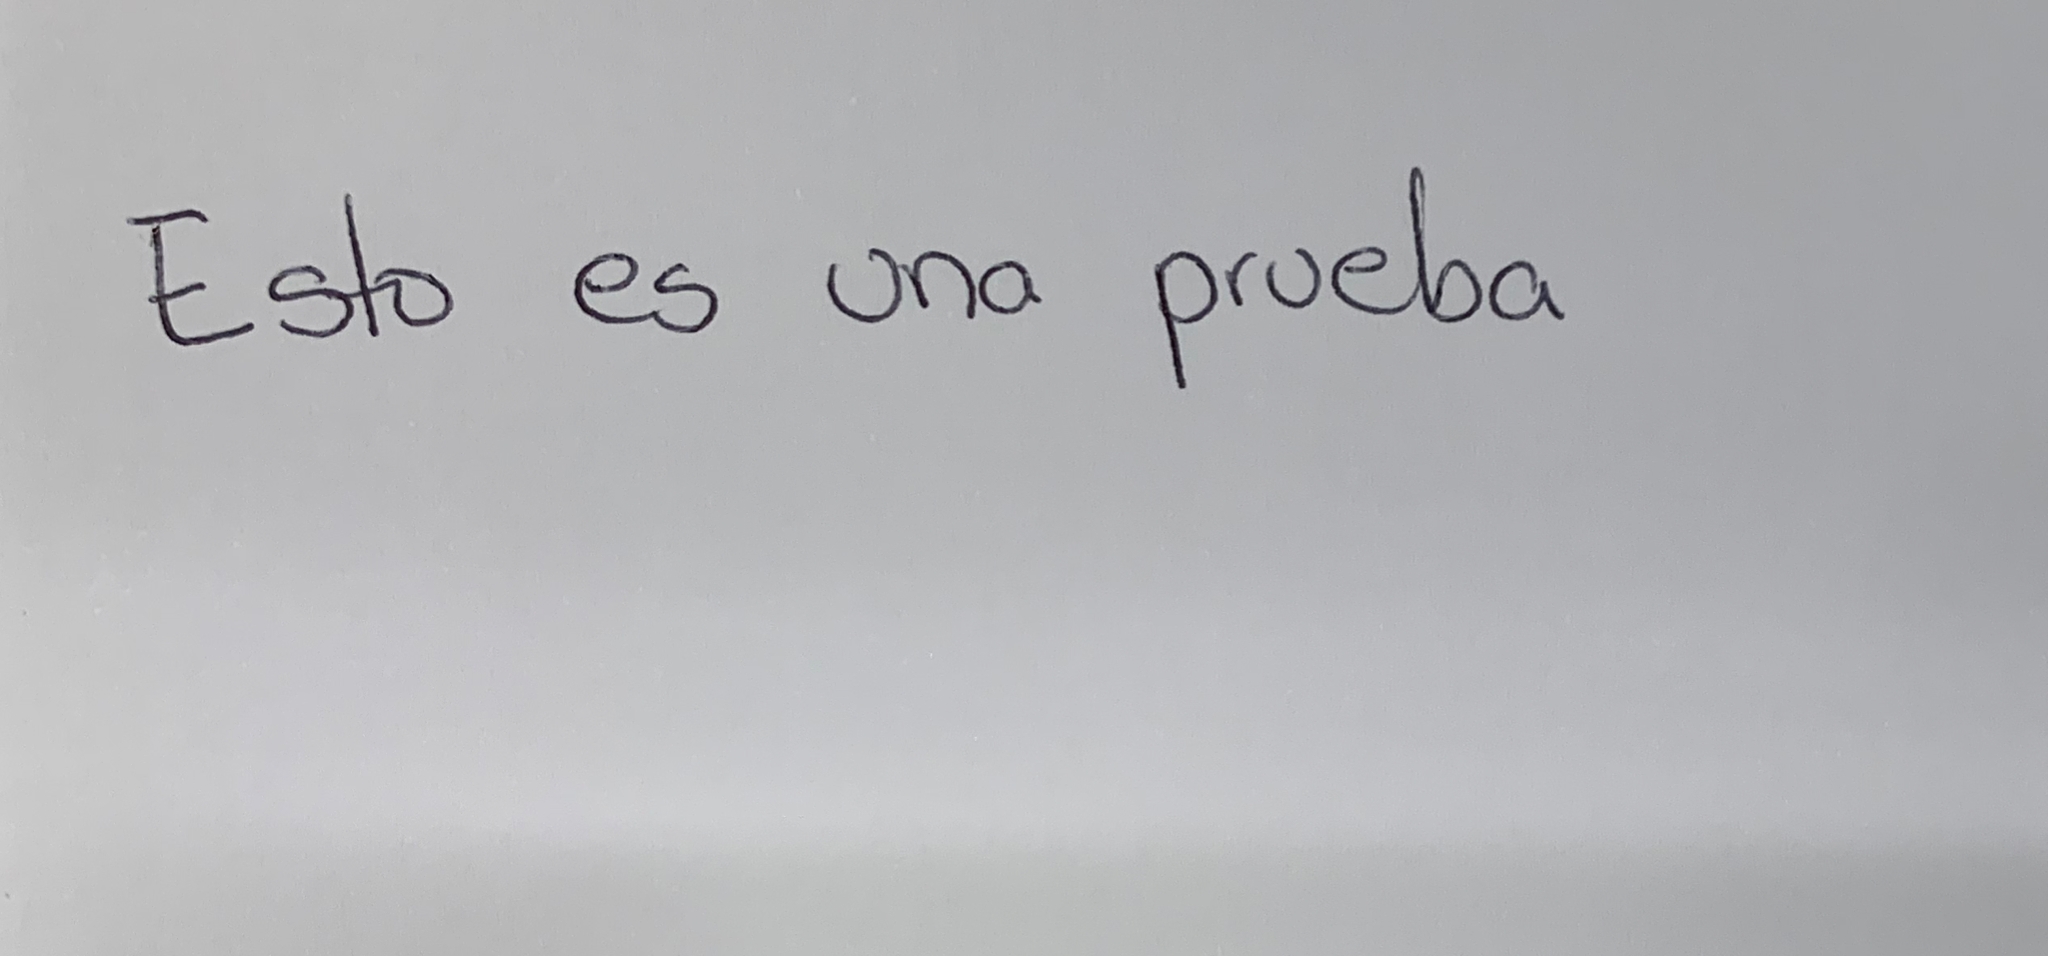 Esto es una prueba